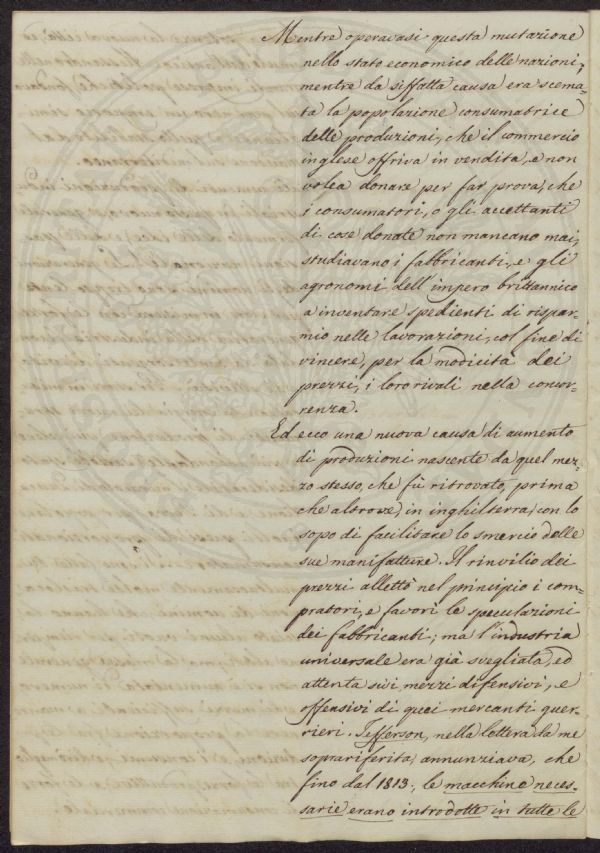 Mentre operavasi questa mutazione
nello stato economico delle nazioni;
mentre da siffatta causa era scema-
ta la popolazione consumatrice
delle produzioni, che il commercio
inglese offriva in vendita, e non
volea donare per far prova, che
i consumatori, o gli accettanti
di cose donate non mancano mai,
studiavano i fabbricanti, e gli
agronomi dell'impero brittannico
a inventare spedienti di rispar-
mio nelle lavorazioni, col fine di
vincere, per la modicità dei
prezzi, i loro rivali nella concor-
renza.
Ed ecco una nuova causa di aumento
di produzioni nascente da quel mez-
zo stesso, che fù ritrovato, prima
che altrove, in inghilterra, con lo
sopo di facilitare lo smercio delle
sue manifatture. Il rinvilio dei
prezzi allettò nel principio i com-
pratori, e favorì le speculazioni
dei fabbricanti; ma l'industria
universale era già svegliata, ed
attenta sui mezzi difensivi, e
offensivi di quei mercanti guer-
rieri. Jefferson, nella lettera da me
soprariferita, annunziava, che
fino dal 1813, le macchine neces-
sarie erano introdotte in tutte le